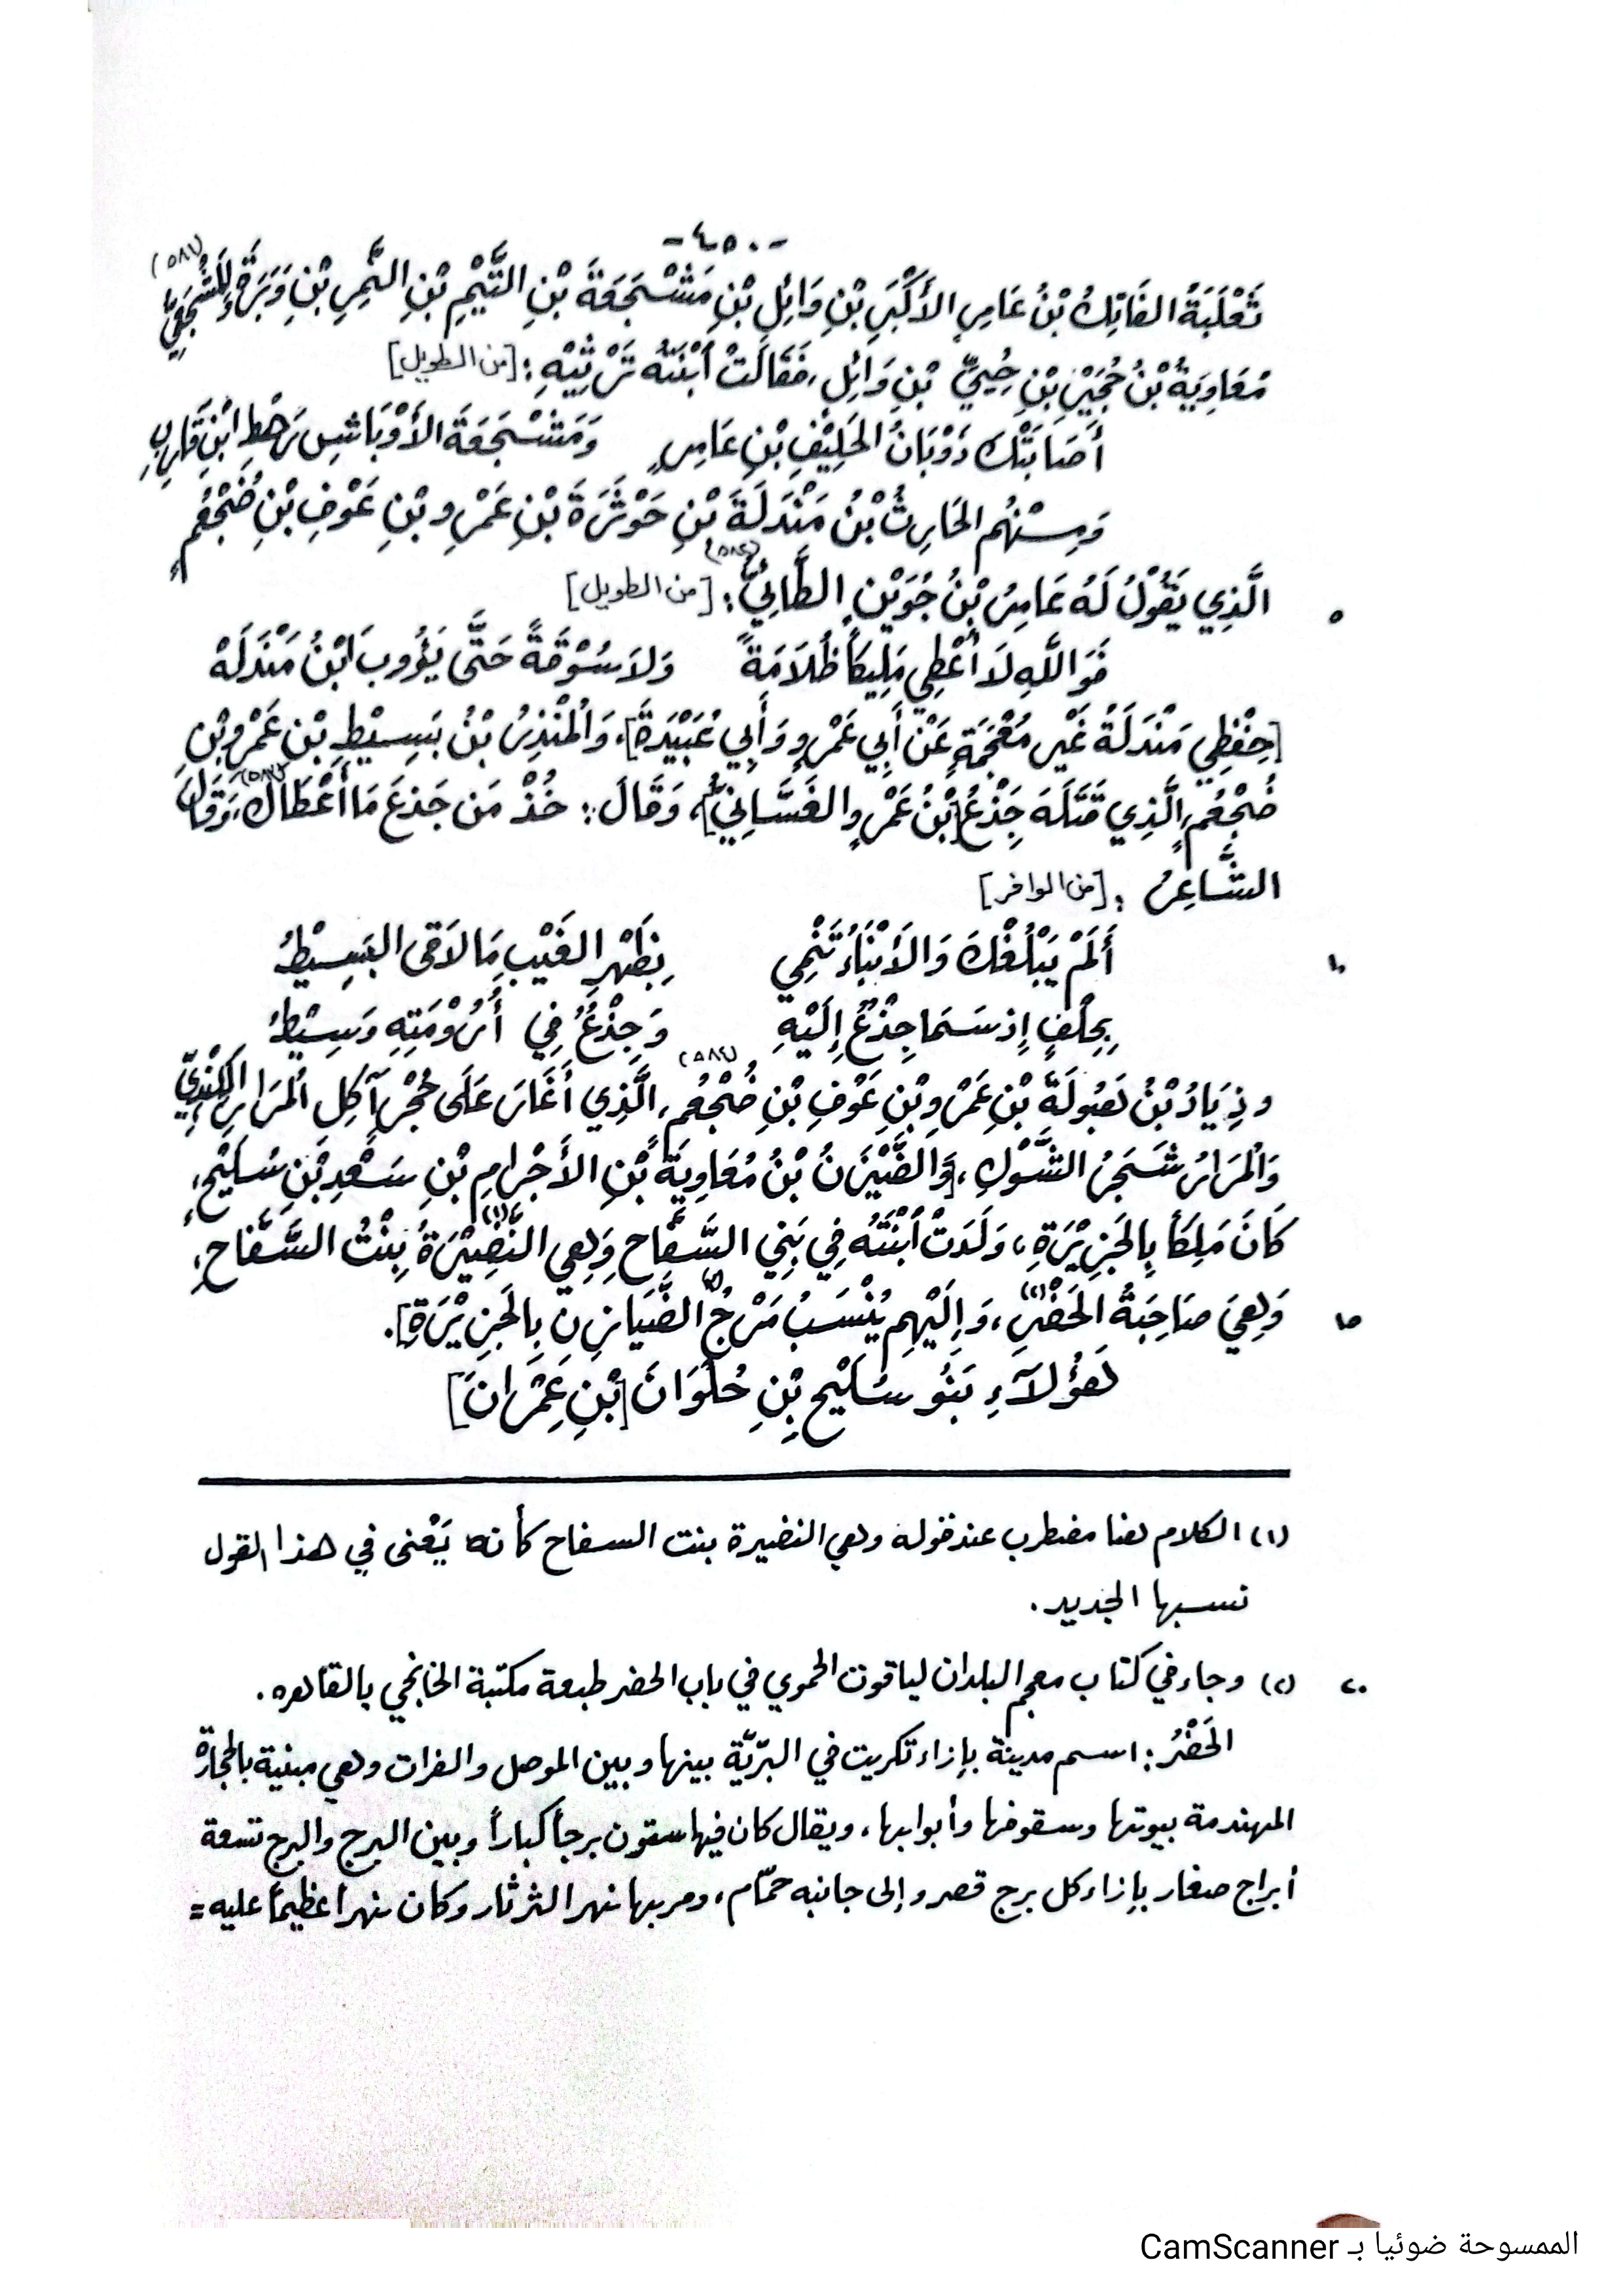 -٤٥٠-
ثَعْلَبَةُ الفَاتِكُ بْنُ عَامِرِ الأَكْبَرِ بْنِ وَائِلِ بْنِ مَشْجَعَةَ بْنِ التَّيْمِ بْنِ النَّمِرِ بْنِ وَبَرَةَ
مُعَاوِيَةُ بْنُ حُجَيْرِ بْنِ حُيَيِّ بْنِ وَائِلٍ، فَقَالَتْ ابْنَتُهُ تَرْثِيْهِ: [من الطويل]
أَصَابَتْكَ ذَوْبَانُ الحَلِيْفِ بْنِ عَامِرٍ وَمَشْجَعَةَ الأَوْبَاشِ رَهْطِ ابْنِ قَارِبِ
وَمِنْهُم الحَارِثُ بْنُ مَنْدَلَةَ بْنِ حَوْثَرَةَ بْنِ عَمْرِو بْنِ عَوْفِ بْنِ ضُجْعُمٍ
الَّذِي يَقُوْلُ لَهُ عَامِرُ بْنُ جُوَيْنٍ الطَّائِيُّ: [من الطويل] ٥
فَوَ اللَّهِ لَا أُعْطِي مَلِيكَاً ظُلَامَةً وَلاَ سُوْقَةً حَتَّى يَؤُوبَ ابْنُ مَنْدَلَهْ
[حِفْظِي مَنْدَلَةُ غَيْر مُعْجَمَةٍ عَنْ أَبِي عَمْرٍو وَأَبِي عُبَيْدَةَ]، وَالمُنْذِرُ بْنُ بَسِيْطِ بْنِ عَمْرِو بْنِ
ضُجْعُمٍ، الَّذِي قَتَلَهُ جِذْعُ [بْنُ عَمْرٍو الغَسَّانِيُّ]، وَقَالَ: خُذْ مَن جَذعَ مَا أَعْطَاكَ، وَقَالَ
الشَّاعِرُ: [من الوافر]
أَلَمْ يَبْلُغْكَ وَالأَنْبَاءُ تَنْمِي بِظَهْرِ الغَيْبِ مَا لاَقَى البَسِيْطُ ١٠
بِحِلْفٍ إِذ سَمَا جِذْعٌ إِلَيْهِ وَجِذْعُ فِي أُرُوْمَتِهِ وَسِيْطُ
وزِيَادُ بْنُ هَبُولَةَ بْنِ عَمْرِو بْنِ عَوْفِ بْنِ ضُجْعُمٍ، الَّذِي أَغَارَ عَلَى حُجْرٍ آكِلِ المُرَارِ الكِنْدِيِّ
وَالمُرَارُ شَجَرُ الشَّوْكِ، [وَالضَّيْزَنُ بْنُ مُعَاوِيَةَ بْنِ الأَجْرَامِ بْنِ سَعْدِ بْنِ سَلِيْحٍ،
كَانَ مَلِكَاً بِالجَزِيْرَةِ، وَلَدَتْ ابْنَتُهُ فِي بَنِي السَّفَّاحِ وَهِي النَّضِيْرَةُ (١) بِنْتُ السَّفَّاحِ،
وَهِيَ صَاحِبَةُ الحَضْرِ (٢)، وَإِلَيْهِم يُنْسَبُ مَرْجُ الضَّيَازِنِ بِالجَزِيْرَةِ]. ١٥
هَؤُلآءِ بَنُو سَلِيْحِ بْنِ حُلْوَانَ [بْنِ عِمْرَانَ]
(١) الكلام هنا مضطرب عند قوله وهي النضيرة بنت السفاح كأنه يَعْنى في هذا القول
نسبها الجديد.
(٢) وجاء في كتاب معجم البلدان لياقوت الحموي في باب الحضر طبعة مكتبة الخانجي بالقاهره. ٢٠
الحَضْرُ: اسم مدينة بإزاء تكريت في البرّيّة بينها وبين الموصل والفرات وهي مبنية بالحجارة
المهندمة بيوتها وسقوفها وأبوابها، ويقال كان فيها ستون برجاً كباراً وبين البرج والبرج تسعة
أبراج صغار بإزاء كل برج قصر وإلى جانبه حمّام، ومر بها نهر الثرثار وكان نهراً عظيماً عليه =
الممسوحة ضوئيا بـ CamScanner